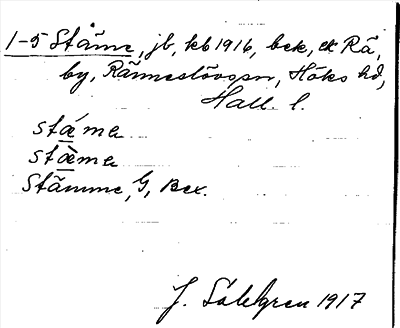 1-5 Stäme, jb, kb 1916, bek, ek Rä,
by, Ränneslövs sn, Höks hd,
Hall. l.
stáma
stæ̀ma
Stämme, G, Bex.
J. Sahlgren 1917